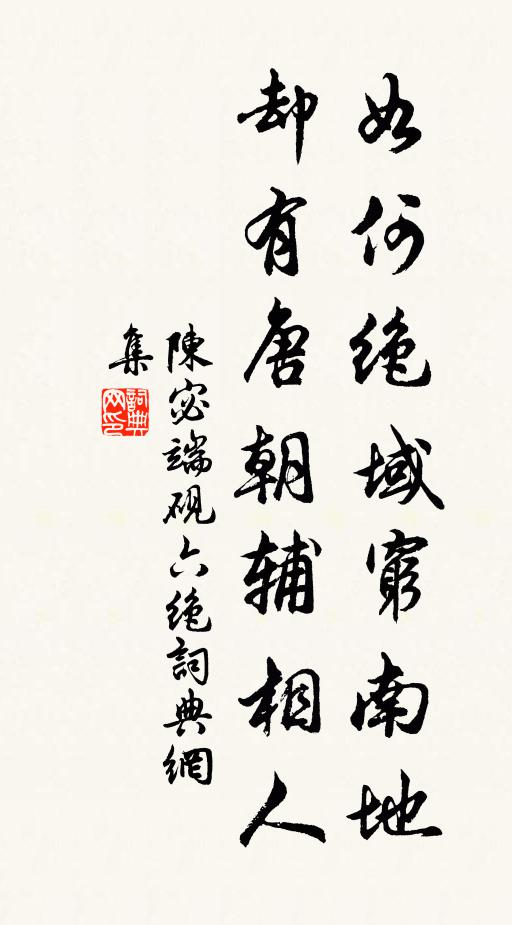 如何绝域窮南地
却有唐朝辅相人
陳宓端硯六绝詞典網
集
詞典网印